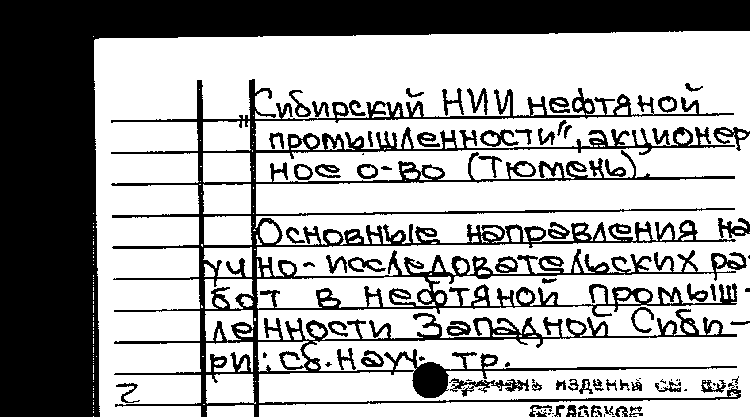 "Сибирский НИИ нефтяной
промышленности", акционер
ное о-во (Тюмень).
Основные направления на
учно-исследовательских ра
бот в нефтяной промыш-
ленности Западной Сиби-
ри: сб. науч. тр.
перечень издания см. под
2 заглавием